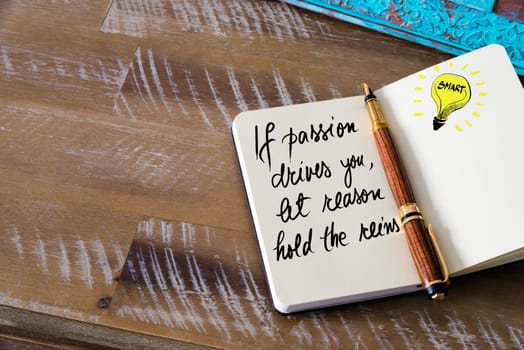 If passion
drives you,
let reason
hold the reins
SMART